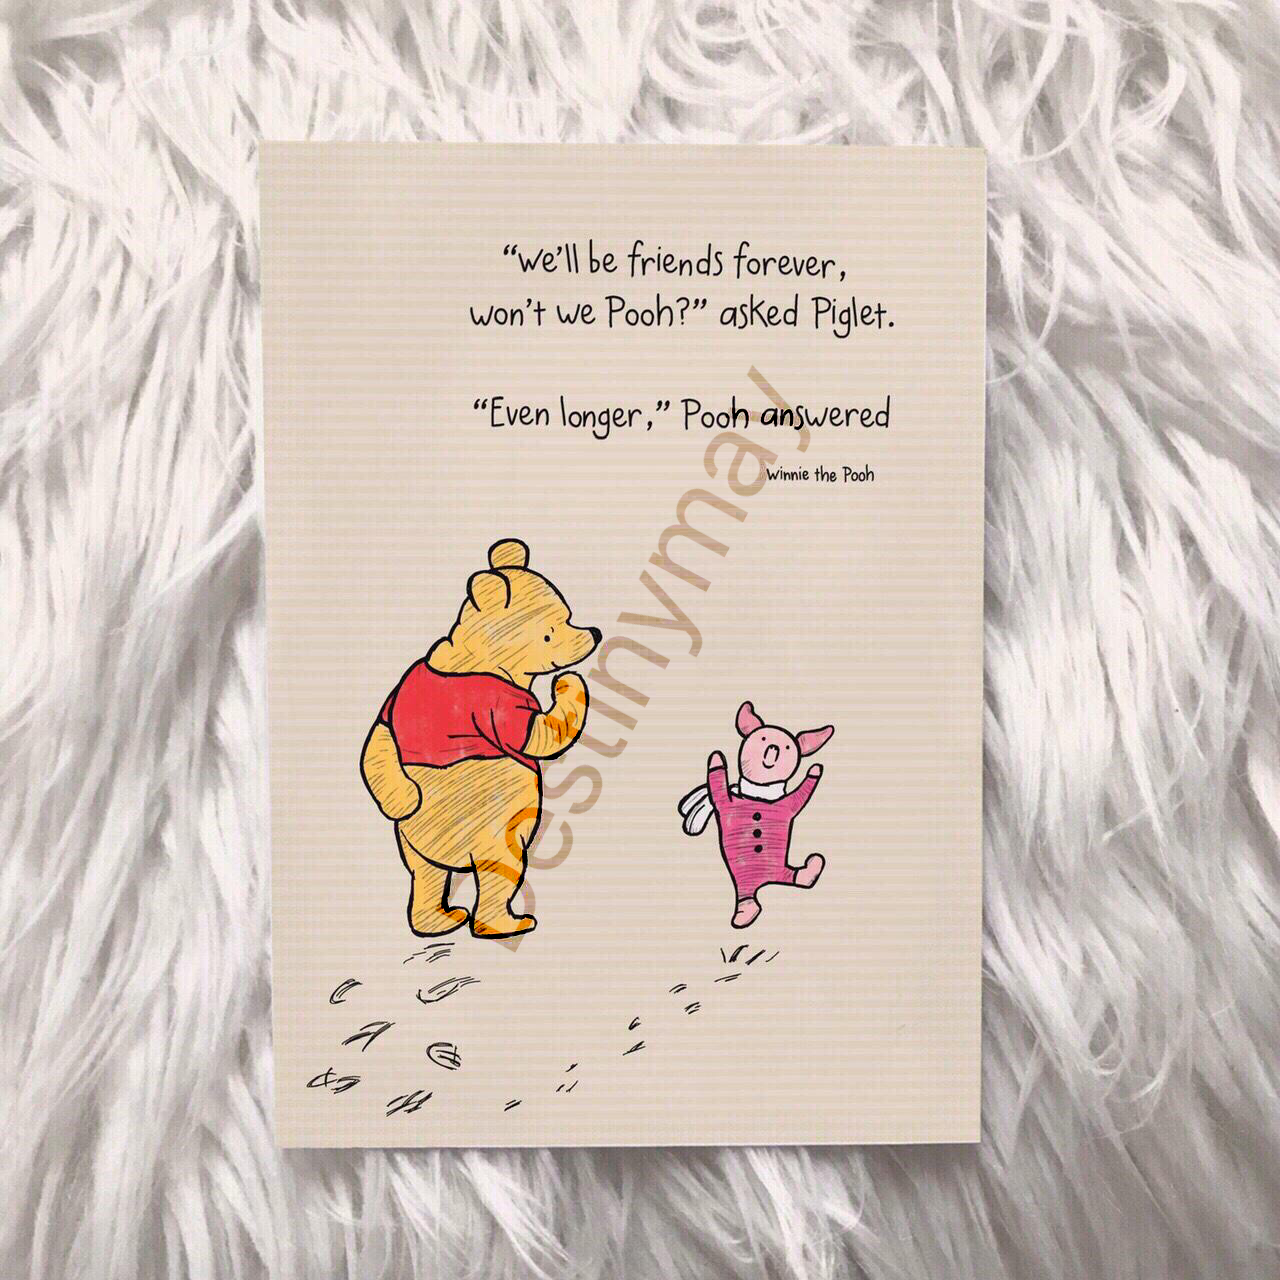 “we’ll be friends forever,
won’t we Pooh?” asked Piglet.
“Even longer,” Pooh answered
Winnie the Pooh
Destinymay